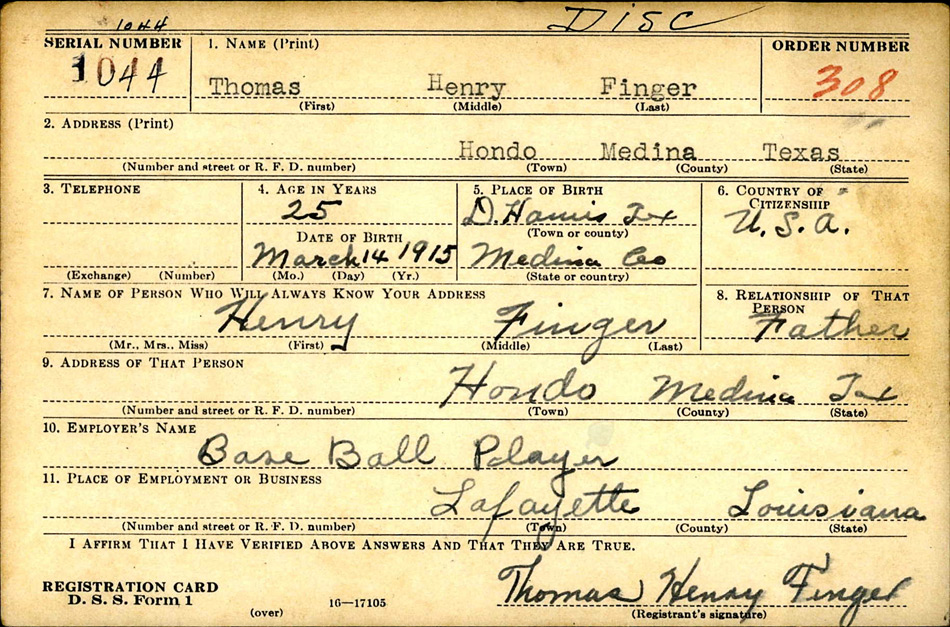 1044 DISC
SERIAL NUMBER 1. NAME (Print) ORDER NUMBER
1044 Thomas Henry Finger 308
(First) (Middle) (Last)
2. ADDRESS (Print)
Hondo Medina Texas
(Number and street or R. F. D. number) (Town) (County) (State)
3. TELEPHONE 4. AGE IN YEARS 5. PLACE OF BIRTH 6. COUNTRY OF CITIZENSHIP
25 D. Hanis Tex U.S.A.
DATE OF BIRTH (Town or county)
March 14 1915 Medina Co
(Exchange) (Number) (Mo.) (Day) (Yr.) (State or country)
7. NAME OF PERSON WHO WILL ALWAYS KNOW YOUR ADDRESS 8. RELATIONSHIP OF THAT PERSON
Henry Finger Father
(Mr., Mrs., Miss) (First) (Middle) (Last)
9. ADDRESS OF THAT PERSON
Hondo Medina Tex
(Number and street or R. F. D. number) (Town) (County) (State)
10. EMPLOYER'S NAME
Base Ball Player
11. PLACE OF EMPLOYMENT OR BUSINESS
Lafayette Louisiana
(Number and street or R. F. D. number) (Town) (County) (State)
I AFFIRM THAT I HAVE VERIFIED ABOVE ANSWERS AND THAT THEY ARE TRUE.
REGISTRATION CARD Thomas Henry Finger
D. S. S. Form 1 (over) 16-17105 (Registrant's signature)